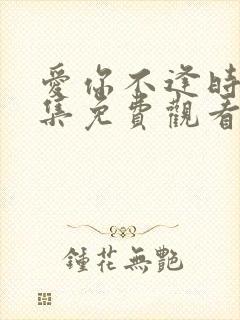 愛你不逢時
集免費觀看
鍾花無艷